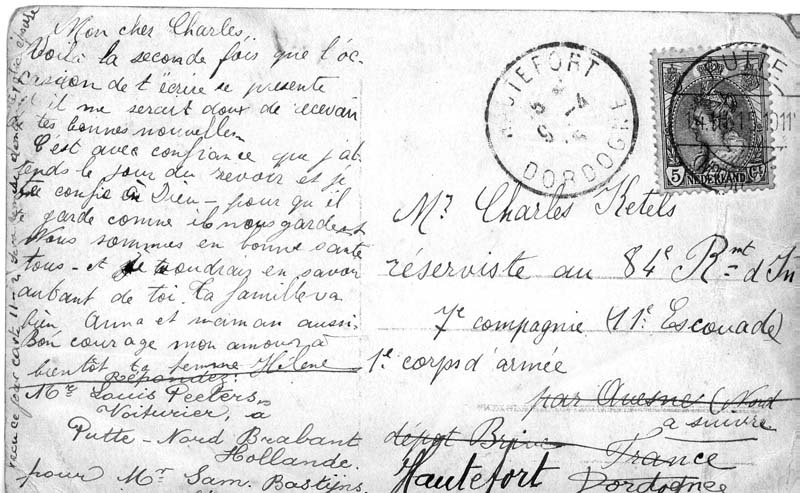 Mon cher Charles,
Voilà la seconde fois que l'oc-
casion de t'écrire se présente
il me serait doux de recevoir
tes bonnes nouvelles
C'est avec confiance que j'at-
tends le jour du revoir et je
te confie à Dieu - pour qu'il
garde comme il nous garde
Nous sommes en bonne santé
tous - et je voudrais en savoir
autant de toi. Ta famille va
bien Anna et maman aussi.
Bon courage mon amour, à
bientôt ta femme Hélène
Répondez:
Mr Louis Peeters,
Voiturier, à
Putte - Nord Brabant
Hollande.
pour Mr Sam. Bastyns
HAUTEFORT
DORDOGNE
NEDERLAND
5 Ct
PUTTE
Mr Charles Ketels
réserviste au 84e Rmt d'In
7e compagnie (11e Escouade)
1e corps d'armée
par Avesne (Nord
à suivre
dépôt Brive France
Hautefort Dordogne
carte 11-2